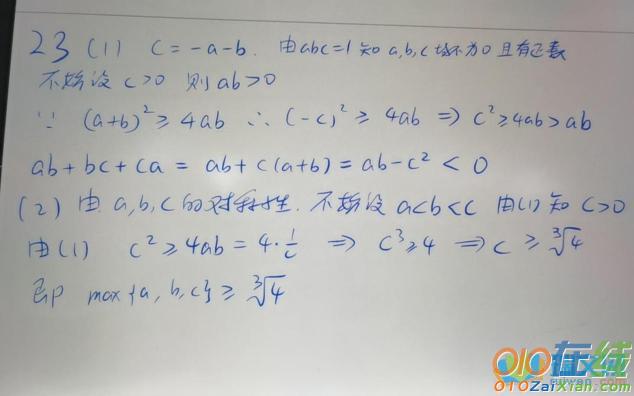 23 (1) c=-a-b. 由abc=1知a,b,c均不为0且有正数
不妨设c>0 则ab>0
∵ (a+b)²≥4ab ∴(-c)²≥4ab ⇒ c²≥4ab>ab
ab+bc+ca=ab+c(a+b)=ab-c²<0
(2) 由a,b,c的对称性.不妨设a<b<c 由(1)知c>0
由(1) c²≥4ab=4·1/c ⇒ c³≥4 ⇒ c≥∛4
即 max{a,b,c}≥∛4
010在线
010ZaiXian.com
ruiwen.com